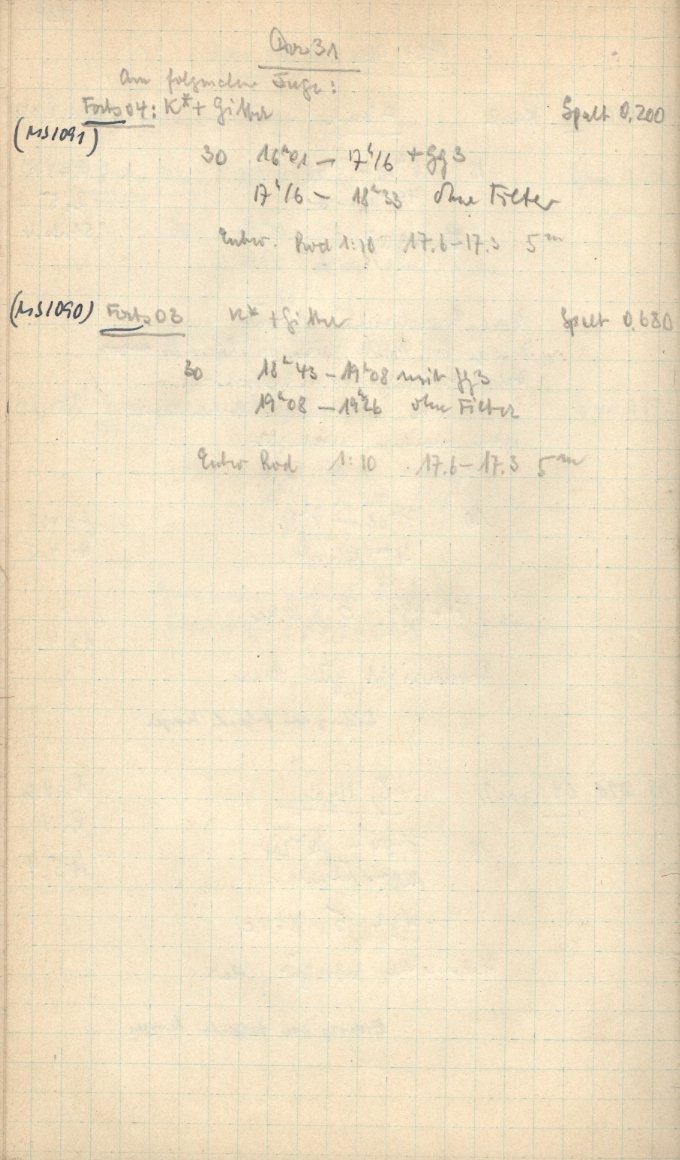 31
Am folgenden Tage:
Forts 04: K* + Gitter Spalt 0,200
(MS1091)
30 16ʰ01 – 17ʰ16 + Gg 3
17ʰ16 – 18ʰ33 ohne Filter
Entw. Rod 1:10 17.6–17.3 5ᵐ
(MS1090) Forts 03 K* + Gitter Spalt 0,680
30 18ʰ43 – 19ʰ08 mit Gg3
19ʰ08 – 19ʰ26 ohne Filter
Entw Rod 1:10 17.6–17.3 5ᵐ